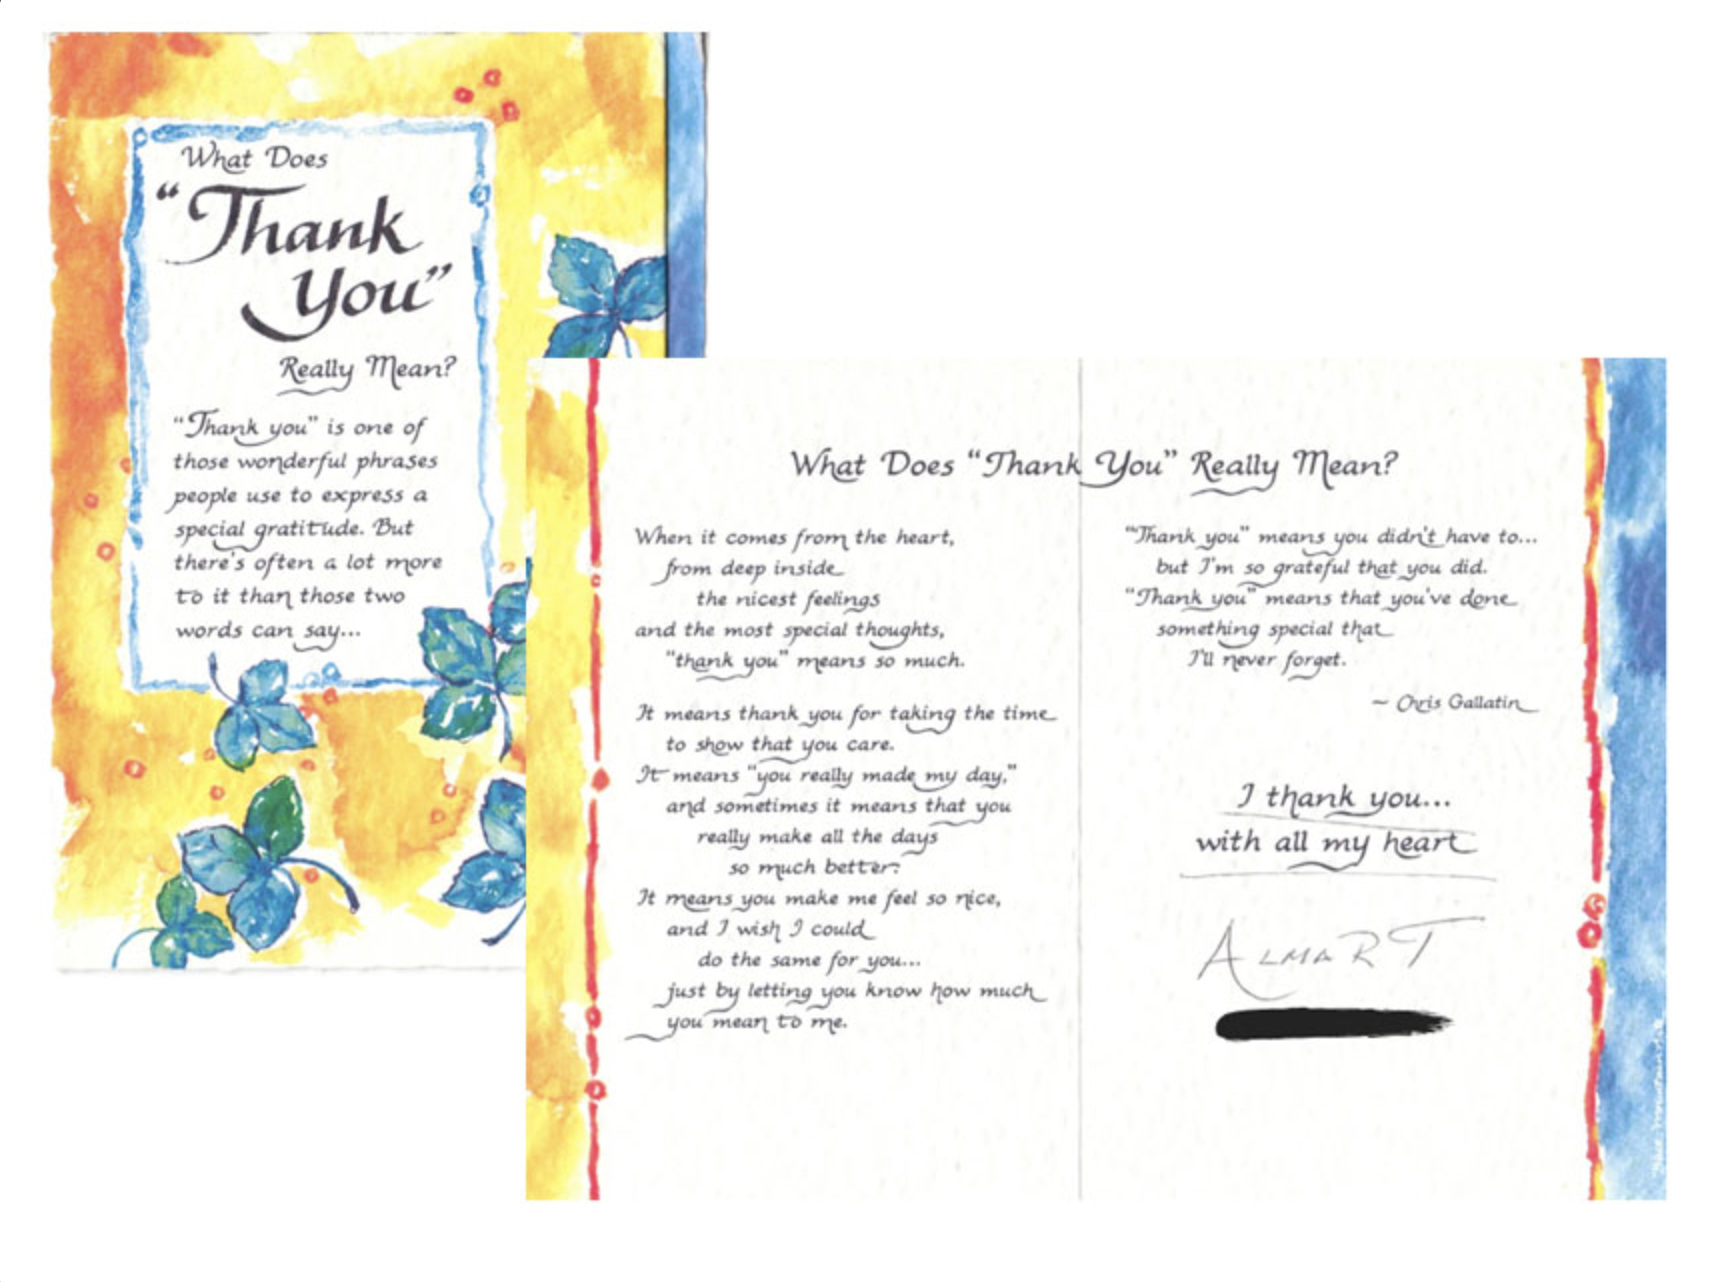 What Does
“Thank
You”
Really Mean?
“Thank you” is one of
those wonderful phrases
people use to express a
special gratitude. But
there's often a lot more
to it than those two
words can say...
What Does “Thank You” Really Mean?
When it comes from the heart,
from deep inside
the nicest feelings
and the most special thoughts,
“thank you” means so much.
It means thank you for taking the time
to show that you care.
It means “you really made my day,”
and sometimes it means that you
really make all the days
so much better.
It means you make me feel so nice,
and I wish I could
do the same for you...
just by letting you know how much
you mean to me.
“Thank you” means you didn't have to...
but I'm so grateful that you did.
“Thank you” means that you've done
something special that
I'll never forget.
~ Chris Gallatin
I thank you...
with all my heart
ALMART
Blue Mountain Arts